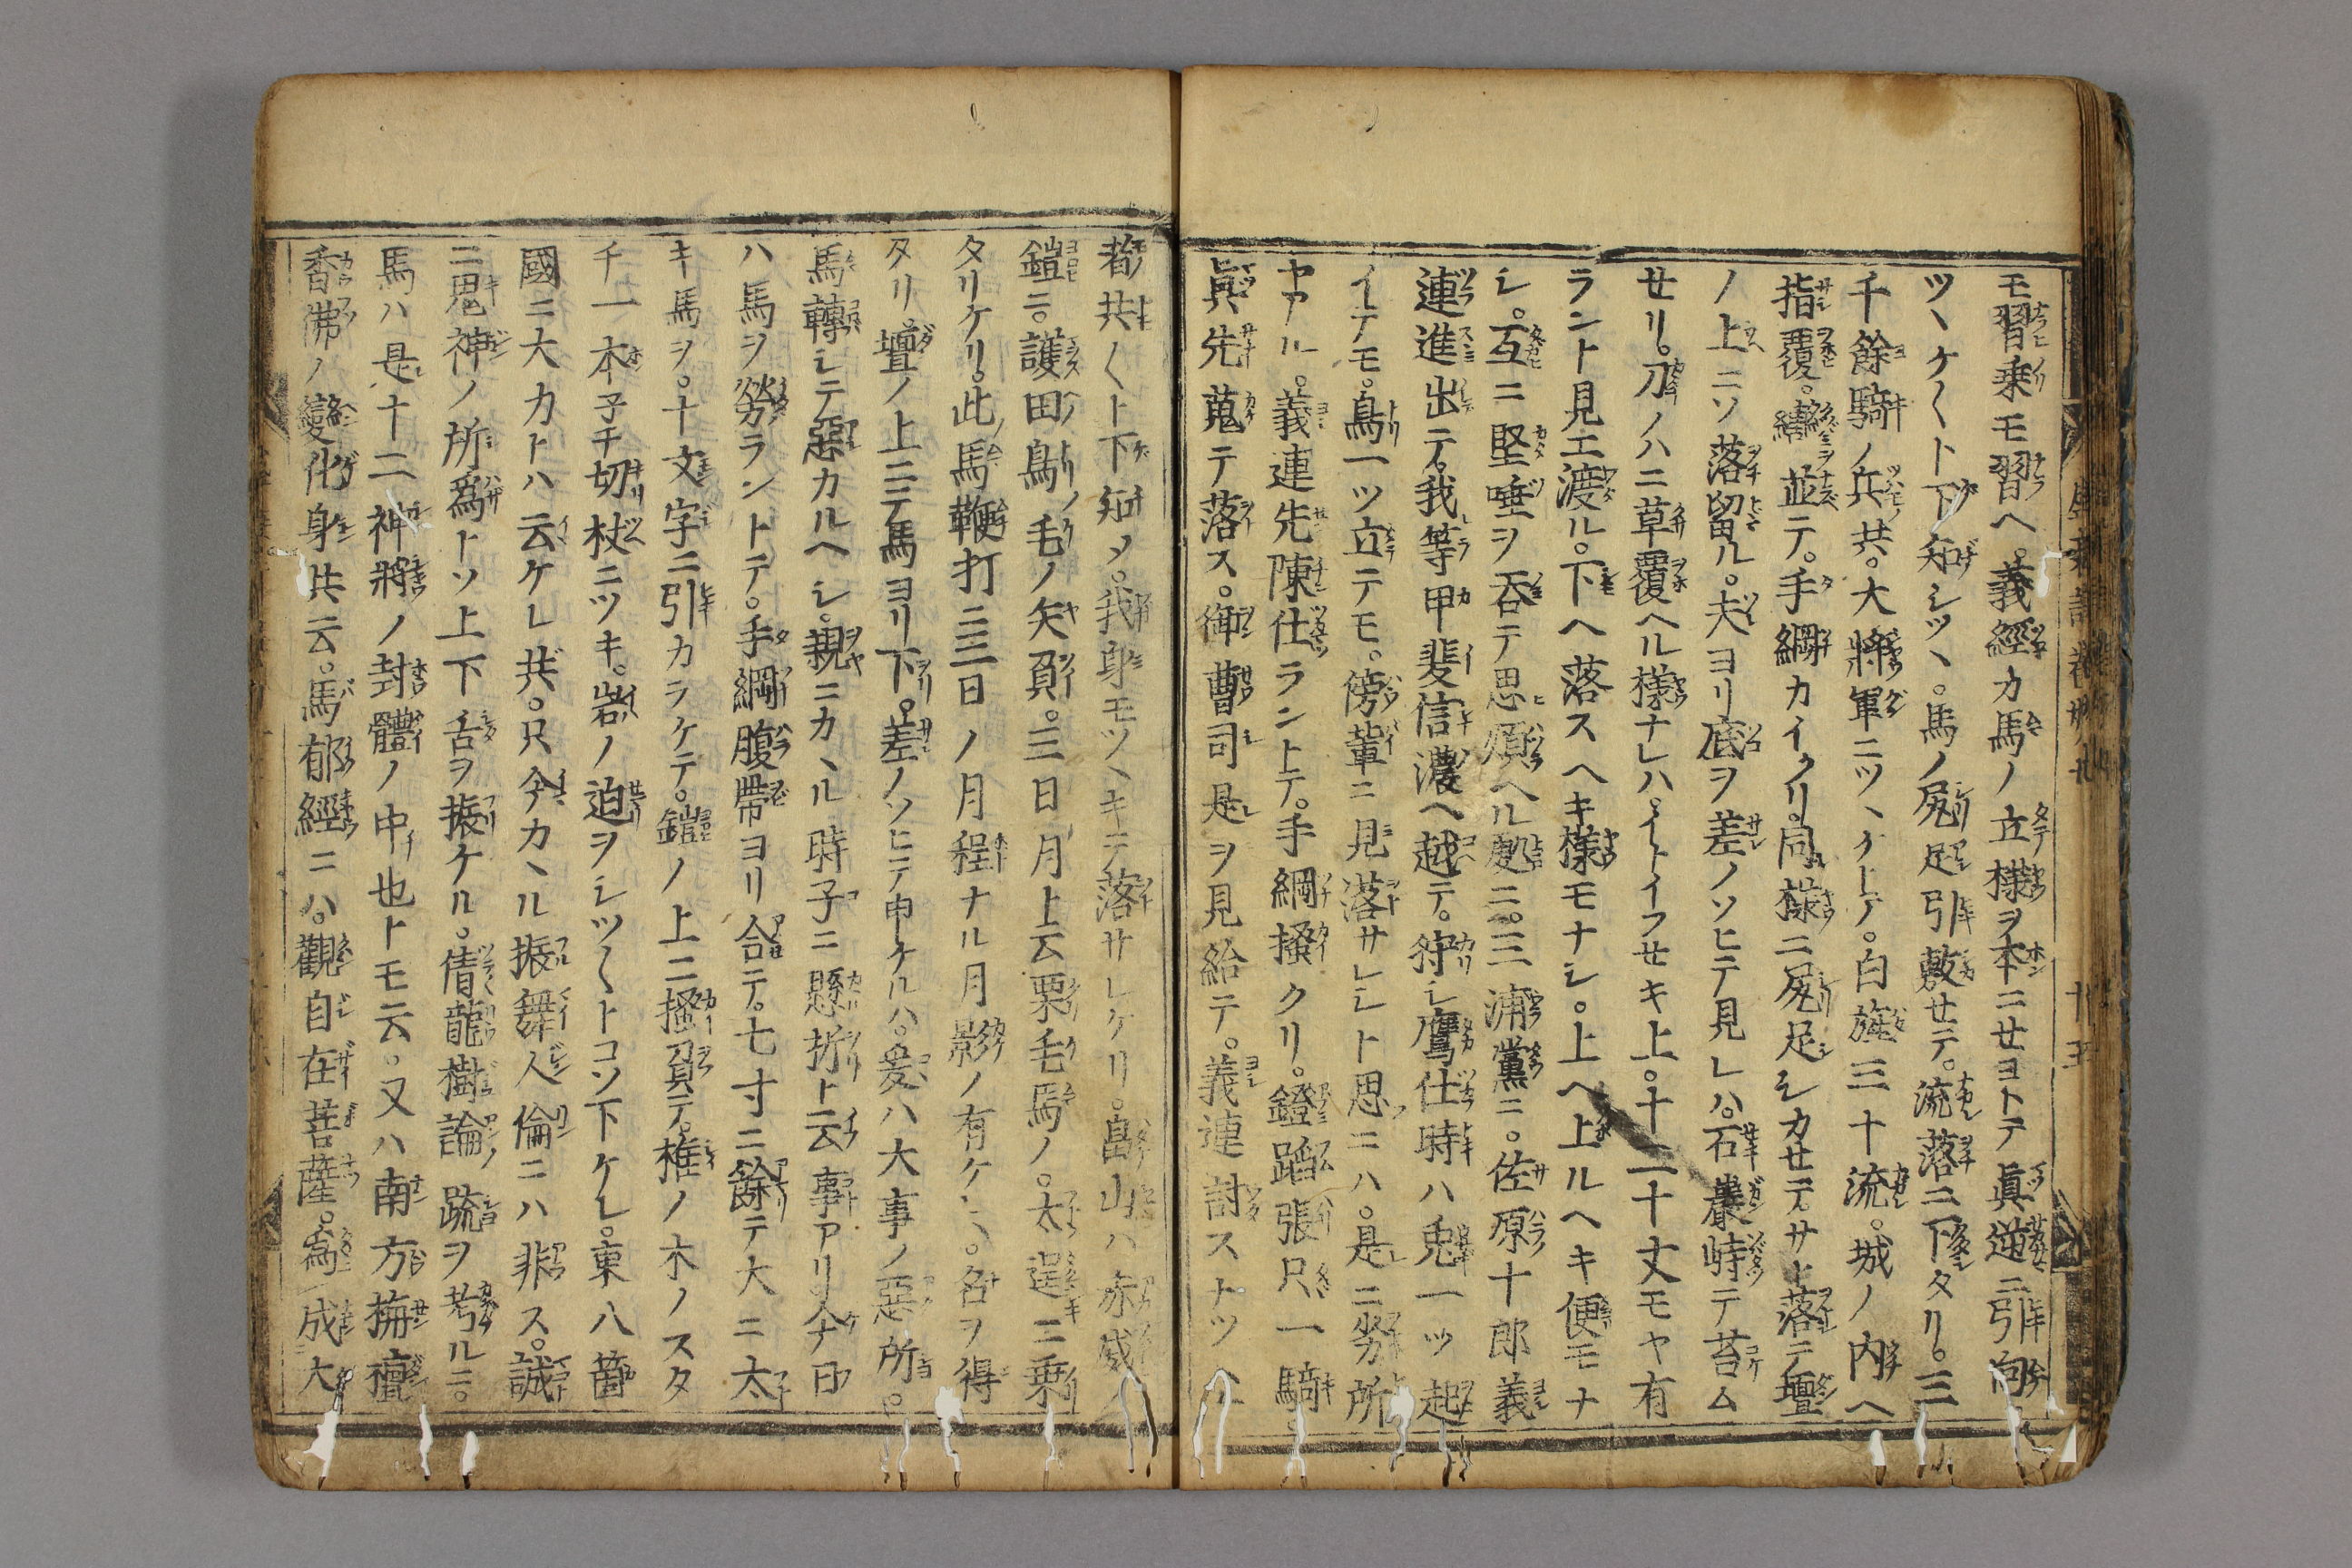 モ習乗モ習ヘ。義經カ馬ノ立様ヲ本ニセヨトテ眞逆ニ引向
ツヽケ〱ト下知シツヽ。馬ノ尻足引敷セテ。流落ニ下タリ。三
千餘騎ノ兵共。大將軍ニツヽケトテ。白旗三十流。城ノ内ヘ
指覆。轡並テ。手綱カイクリ。同様ニ尻足シカセテ。サト落テ壇
ノ上ニソ落留ル。夫ヨリ底ヲ差ノソヒテ見レハ。石巖峙テ苔ム
セリ。刀ノハニ草覆ヘル様ナレハ。イトイフセキ上。十二十丈モヤ有
ラント見エ渡ル。下ヘ落スヘキ様モナシ。上ヘ上ルヘキ便モナ
シ。互ニ堅唾ヲ呑テ思煩ヘル處ニ。三浦黨ニ。佐原十郎義
連進出テ。我等甲斐信濃ヘ越テ。狩シ鷹仕時ハ兎一ツ起
イテモ。鳥一ツ立テモ。傍輩ニ見落サレシト思ニハ。是ニ劣所
ヤアル。義連先陳仕ラントテ。手綱掻クリ。鐙蹈張只一騎。
眞先蒐テ落ス。御曹司是ヲ見給テ。義連討スナツヽケ
者共〱ト下知メ。我身モツヽキテ落サレケリ。畠山ハ赤威ノ
鎧ニ。護田鳥毛ノ矢負。三日月上云栗毛馬ノ。太逞ニ乗
タリケリ。此馬鞭打ニ三日ノ月程ナル月影ノ有ケレハ。名ヲ得
タリ。壇ノ上ニテ馬ヨリ下。差ノソヒテ申ケルハ。爰ハ大事ノ惡所。
馬轉シテ惡カルヘシ。親ニカヽル時子ニ懸折ト云事アリ今日
ハ馬ヲ勞ラントテ。手綱腹帶ヨリ合テ。七寸ニ餘テ大ニ太
キ馬ヲ。十文字ニ引カラケテ。鎧ノ上ニ掻負テ。椎ノ木ノスタ
チ一本子チ切杖ニツキ。岩ノ迫ヲシツ〱トコソ下ケレ。東八箇
國ニ大力トハ云ケレ共。只今カヽル振舞人倫ニハ非ス。誠
ニ鬼神ノ所爲トソ上下舌ヲ振ケル。倩龍樹論ノ䟽ヲ考ルニ。
馬ハ是十二神將ノ封體ノ中也トモ云。又ハ南方栴檀
香佛ノ變化身共云。馬郁經ニハ。觀自在菩薩。爲成大